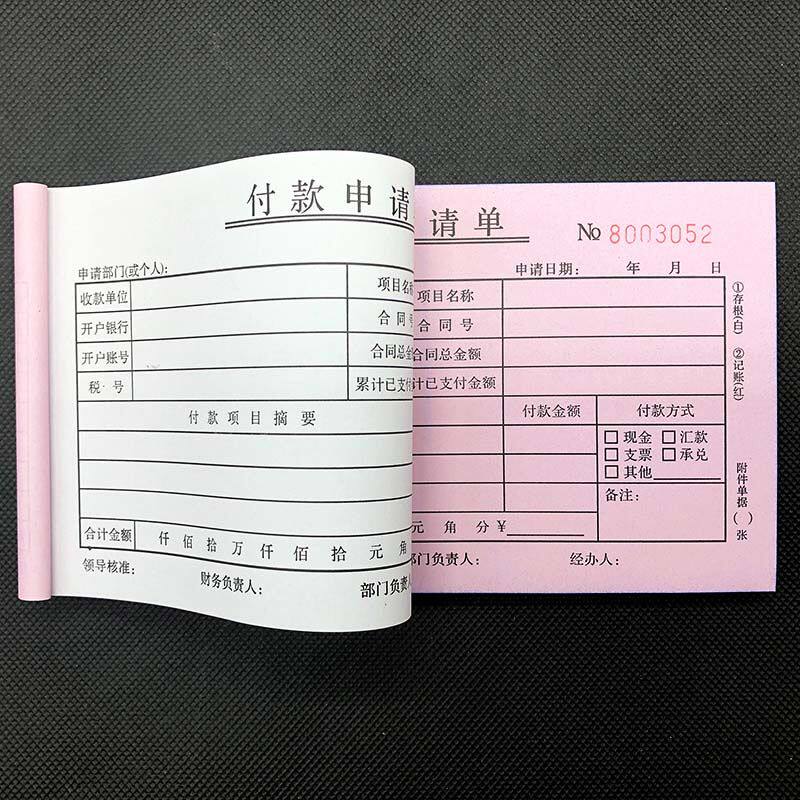 付款申请
申请部门(或个人):
收款单位 项目名称
开户银行 合同号
开户账号 合同总金
税号 累计已支付
付款项目摘要
合计金额 仟佰拾万仟佰拾元角
领导核准: 财务负责人: 部门负责人
请单 № 8003052
申请日期: 年 月 日
项目名称
合同号
合同总金额
计已支付金额
付款金额 付款方式
□现金 □汇款
□支票 □承兑
□其他
备注:
元 角 分¥
部门负责人: 经办人:
①存根(白) ②记账(红)
附件单据( )张